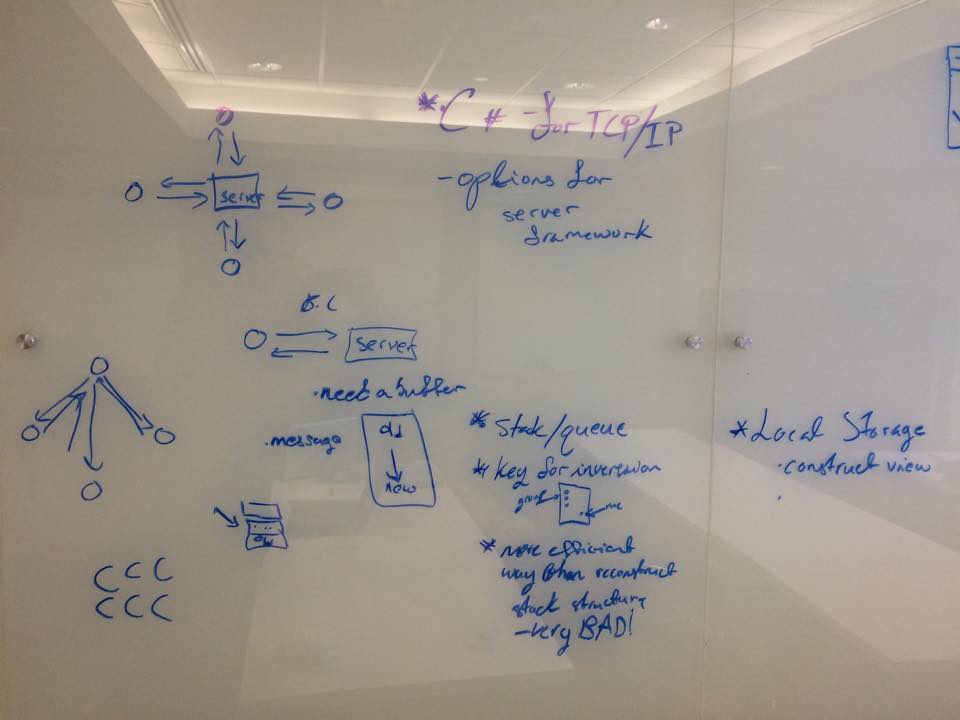 *.C # - for TCP/IP
- options for
server
framework
server
server
.need a buffer
.message
old
new
* Stack/queue
* Key for inversion
group
me
* more efficient
way than reconstruct
stack structure
- very BAD!
* Local Storage
. construct view
.
C C C
C C C